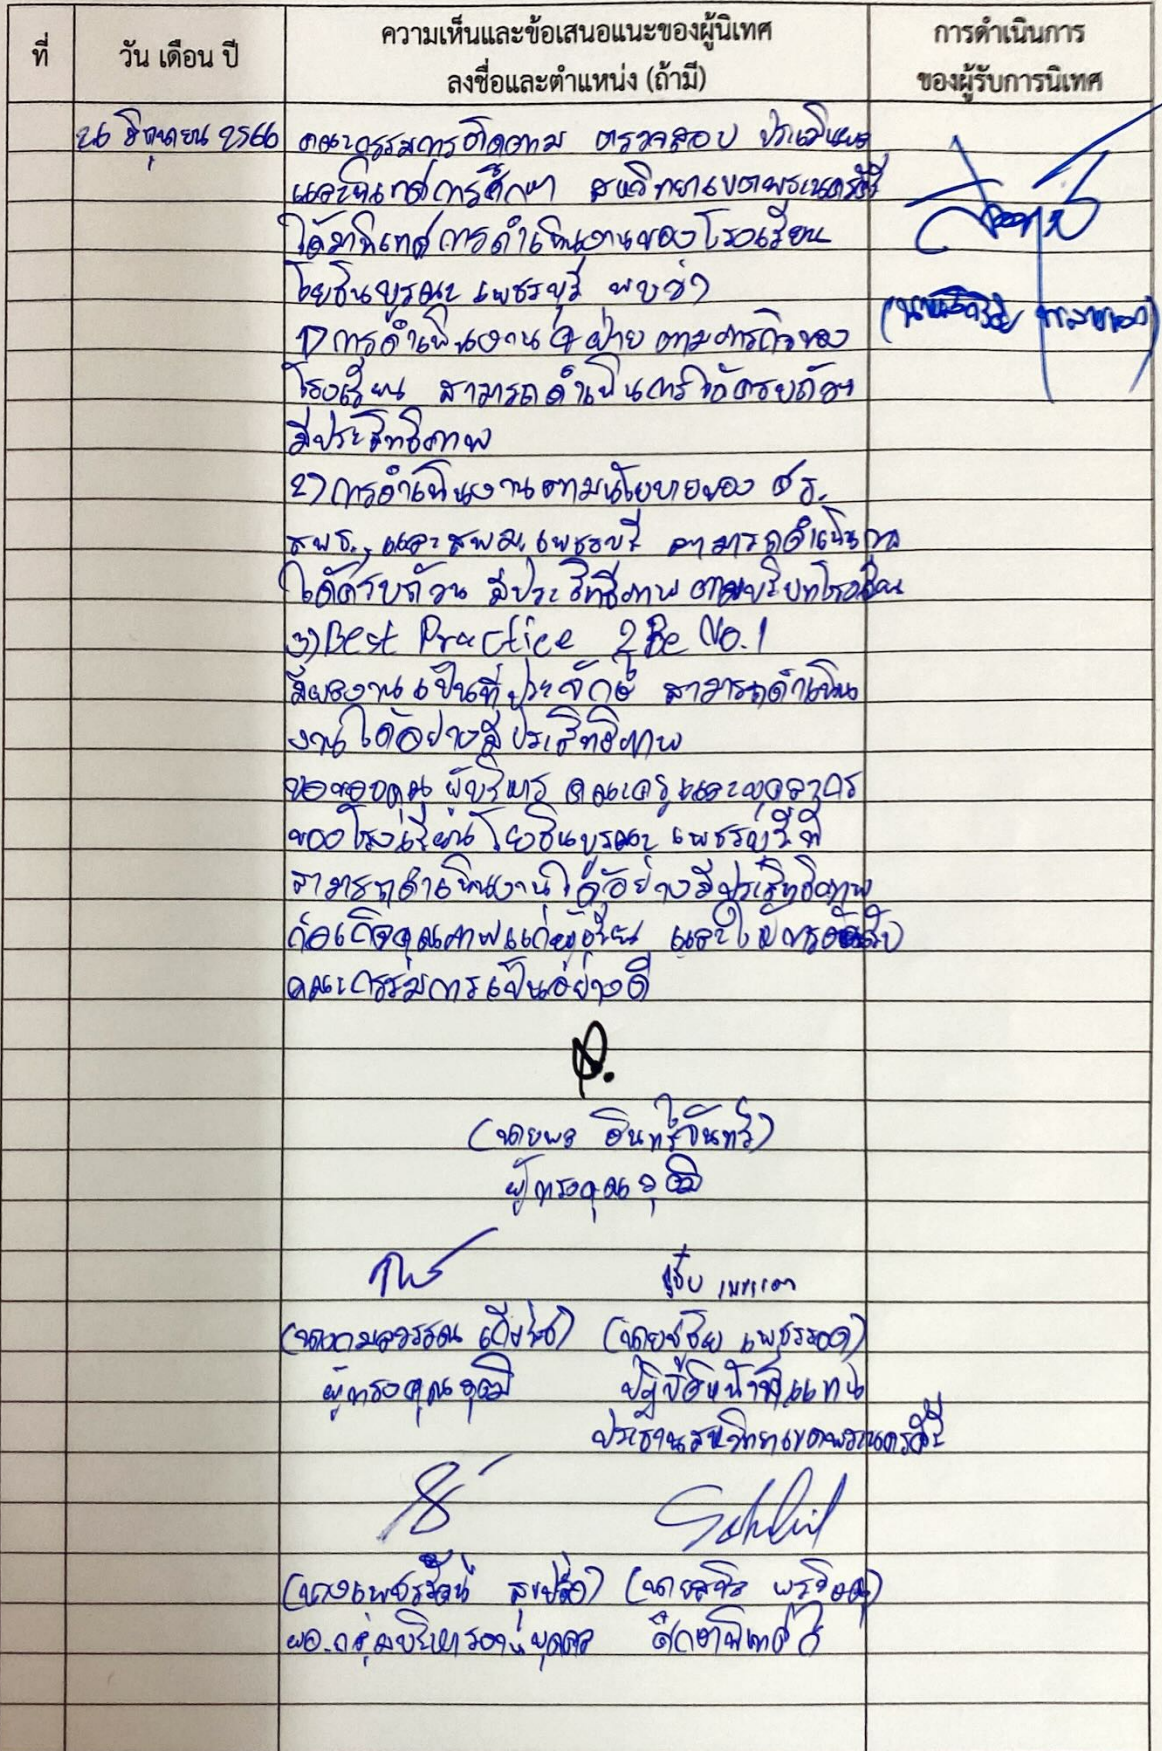 ที่
วัน เดือน ปี
ความเห็นและข้อเสนอแนะของผู้นิเทศ
ลงชื่อและตำแหน่ง (ถ้ามี)
การดำเนินการ
ของผู้รับการนิเทศ
26 มิถุนายน 2566
คณะกรรมการติดตาม ตรวจสอบ ประเมินผล
และนิเทศการศึกษา สหวิทยาเขตพระนครคีรี
ได้มานิเทศการดำเนินงานของโรงเรียน
โยธินบูรณะ เพชรบุรี พบว่า
1) การดำเนินงาน 4 ฝ่าย ตามภารกิจของ
โรงเรียน สามารถดำเนินการได้ครบถ้วน
มีประสิทธิภาพ
2) การดำเนินงานตามนโยบายของ ศธ.
สพฐ., และ สพม.เพชรบุรี สามารถดำเนินการ
ได้ครบถ้วน มีประสิทธิภาพ ตามบริบทโรงเรียน
3) Best Practice 2 Be No.1
มีผลงานเป็นที่ประจักษ์ สามารถดำเนิน
งานได้อย่างมีประสิทธิภาพ
ขอขอบคุณ ผู้บริหาร คณะครูและบุคลากร
ของโรงเรียนโยธินบูรณะ เพชรบุรี ที่
สามารถดำเนินงานได้อย่างมีประสิทธิภาพ
ก่อเกิดคุณภาพแก่ผู้เรียน และให้การต้อนรับ
คณะกรรมการเป็นอย่างดี
(นายพล อินทร์จันทร์)
ผู้ทรงคุณวุฒิ
(นายชูชัย เพชรรอด)
ผู้ทรงคุณวุฒิ
ปฏิบัติหน้าที่แทน
ประธานสหวิทยาเขตพระนครคีรี
(นางเพชรรัตน์
ผอ.กลุ่มบริหารงานบุคคล
ศึกษานิเทศก์